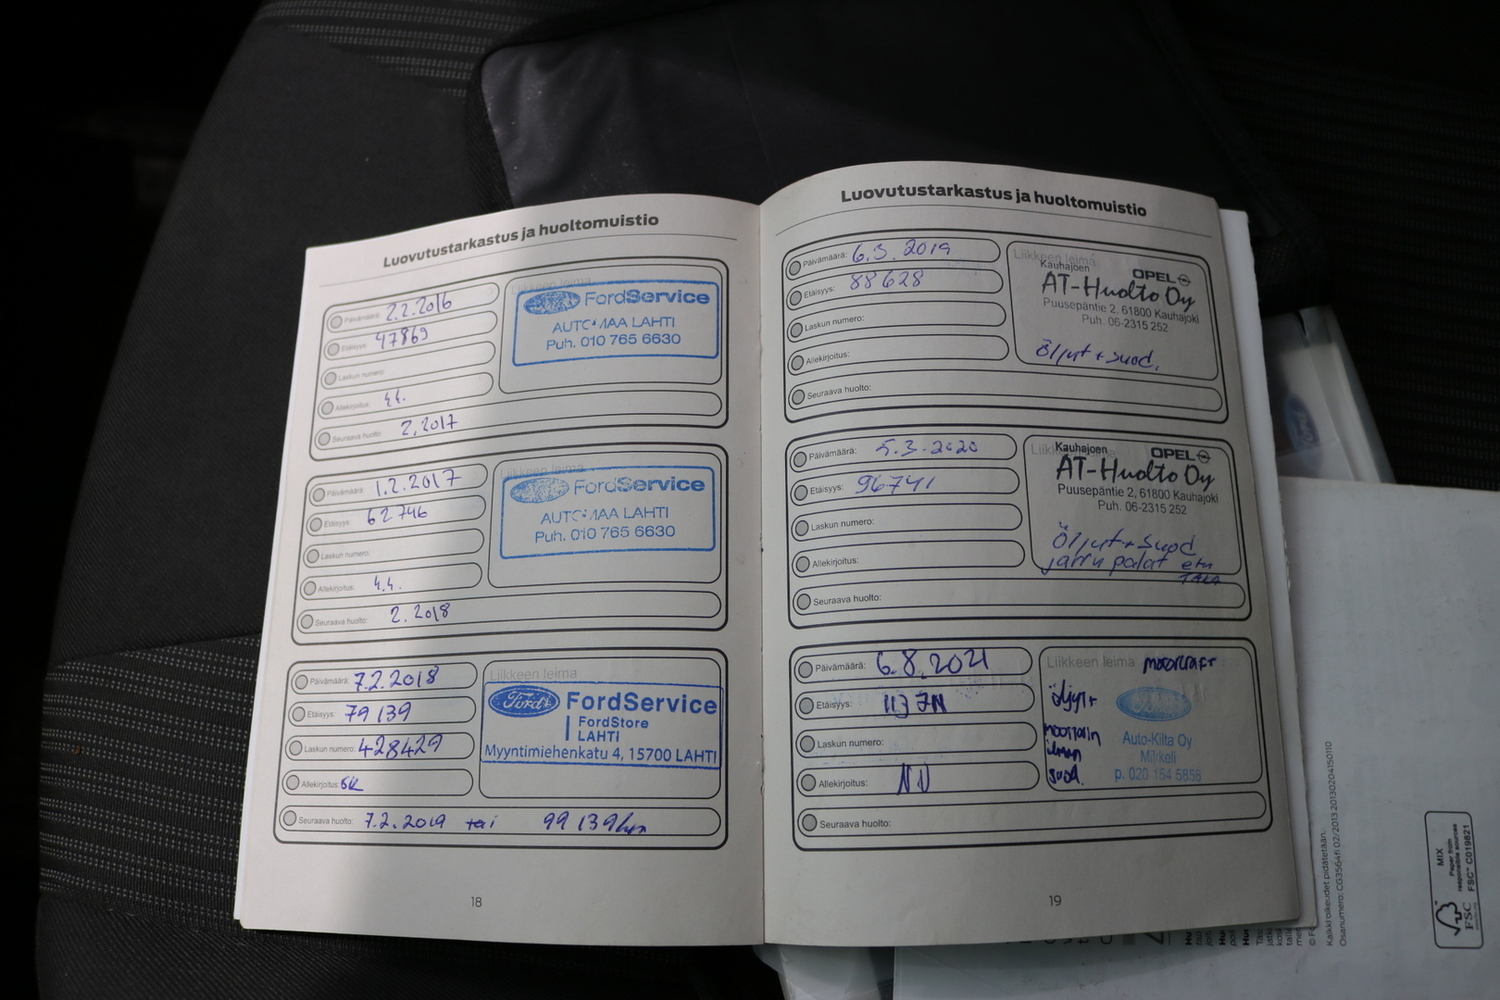 Luovutustarkastus ja huoltomuistio
Päivämäärä: 2.2.2016
Etäisyys: 47869
Laskun numero:
Allekirjoitus:
Seuraava huolto: 2.2017
Liikkeen leima
Ford FordService
LAHTI
Puh. 010 765 6630
Päivämäärä: 1.2.2017
Etäisyys: 62746
Laskun numero:
Allekirjoitus:
Seuraava huolto: 2.2018
Liikkeen leima
Ford FordService
LAHTI
Puh. 010 765 6630
Päivämäärä: 7.2.2018
Etäisyys: 79139
Laskun numero: 428429
Allekirjoitus: SK
Seuraava huolto: 7.2.2019 tai 99139km
Liikkeen leima
Ford FordService
FordStore
LAHTI
Myyntimiehenkatu 4, 15700 LAHTI
18
Luovutustarkastus ja huoltomuistio
Päivämäärä: 6.3.2019
Etäisyys: 88628
Laskun numero:
Allekirjoitus:
Seuraava huolto:
Liikkeen leima
Kauhajoen OPEL
AT-Huolto Oy
Puusepäntie 2, 61800 Kauhajoki
Puh. 06-2315 252
Öljyt + suod.
Päivämäärä: 5.3.2020
Etäisyys: 96741
Laskun numero:
Allekirjoitus:
Seuraava huolto:
Kauhajoen OPEL
AT-Huolto Oy
Puusepäntie 2, 61800 Kauhajoki
Puh. 06-2315 252
Öljyt + suod
jarru palat etu
TAKA
Päivämäärä: 6.8.2021
Etäisyys:
Laskun numero:
Allekirjoitus: NN
Seuraava huolto:
Liikkeen leima motorcraft
öljyt+
moottorin
ilman
suod.
Ford
Auto-Kilta Oy
Mikkeli
p. 020 154 5858
19
Kaikki oikeudet pidätetään.
Osanumero: CG3564fi 02/2013 20130204150110
MIX
Paper from
responsible sources
FSC™ C019821
FSC
Ford